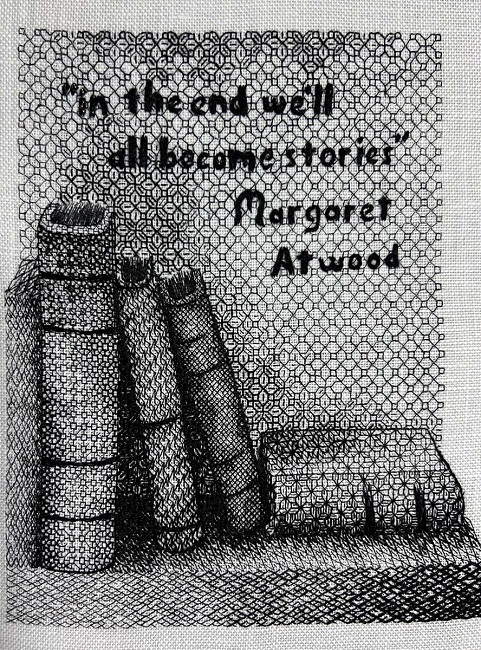 "in the end we'll
all become stories"
Margaret
Atwood